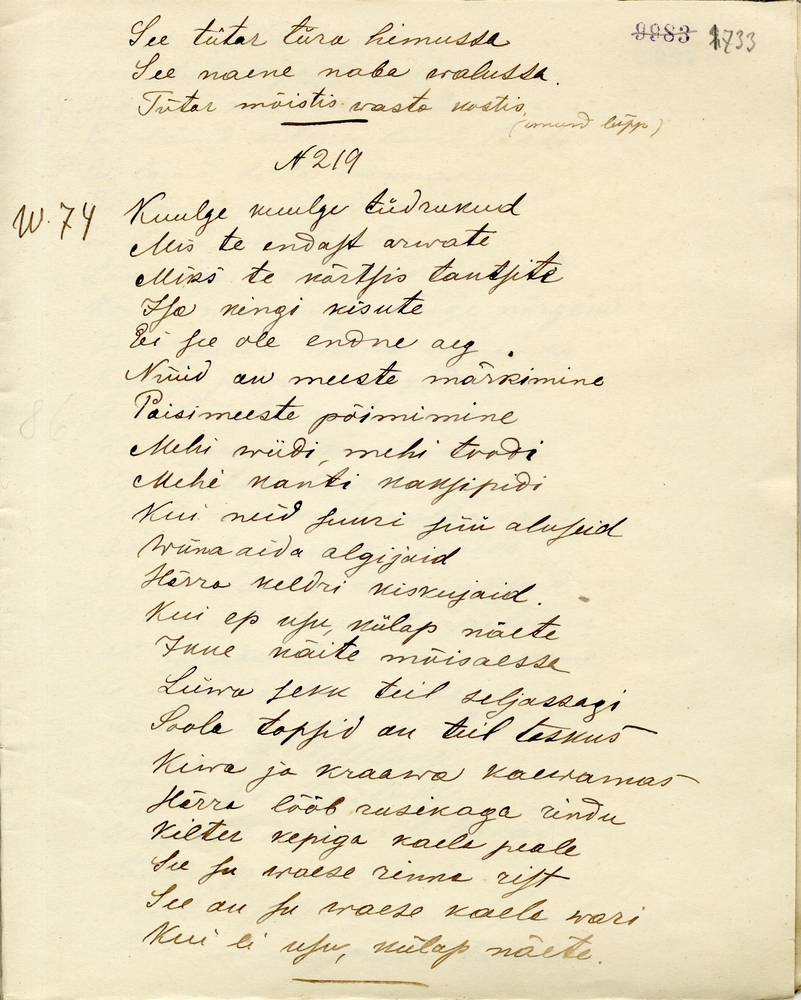 9983 1733
See tütar türa himussa
See naene naba walussa.
Tütar mõistis wasta kostis.
(omand lõpp)
N 219
W. 74
Kuulge kuulge tüdrukud
Mis te endast arwate
Miks te kõrtsis tantsite
Ilsa kingi kisute
Ei see ole endne aeg.
Nüüd on meeste märkimine
Poisimeeste põimimine
Mehi wiidi, mehi toodi
Mehi kanti kaksipidi
Kui neid suuri süü alusid
Wiina aida algijaid
Härra keldri kiskujaid.
Kui ep usu, külap näete
Inne käite mõisaessa
Liiwa sekk teil seljassagi
Soola topsid on teil taskus
Kiwa ja kraawa kaewamas
Härra lööb rusikaga rindu
Kilter kepiga kaela peale
See su waese rinna rist
See on su waese kaela wari
Kui ei usu, külap näete.